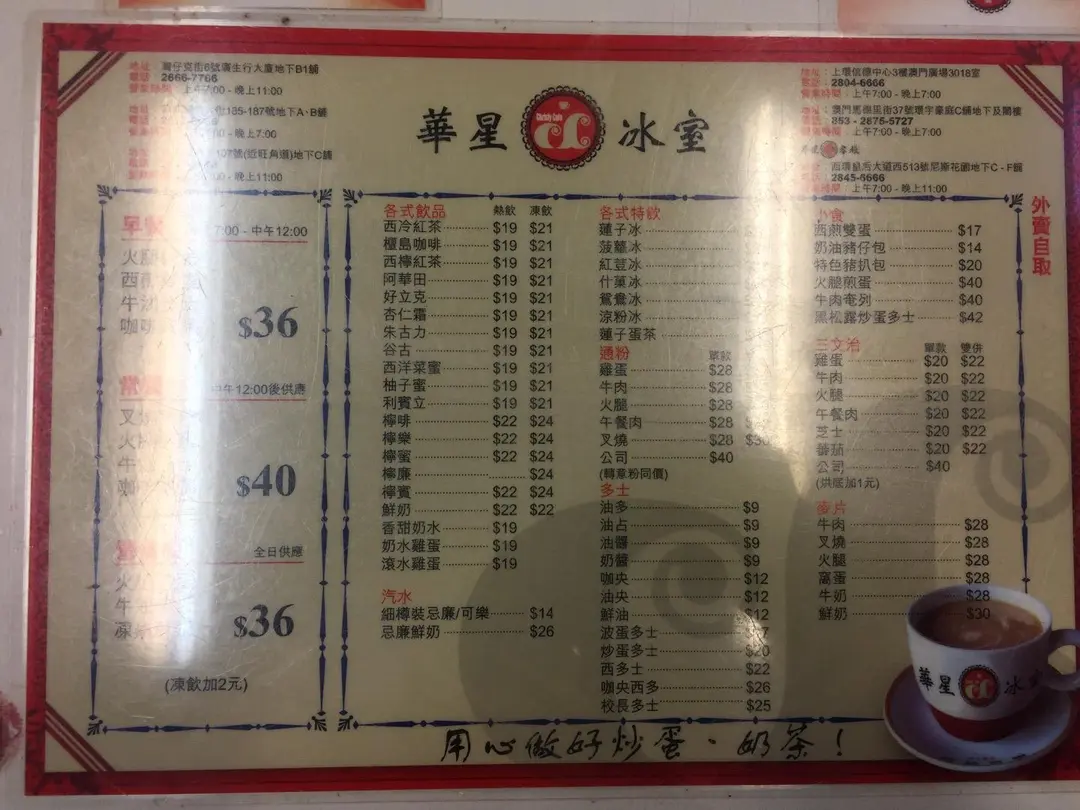 地址：灣仔克街6號廣生行大廈地下B1舖
電話：2666-7766
營業時間：上午7:00 - 晚上11:00
185-187號地下A-B舖
晚上7:00
107號(近旺角道)地下C舖
晚上11:00
華星冰室
地址：上環信德中心3樓澳門廣場3018室
電話：2804-6666
營業時間：上午7:00 - 晚上7:00
地址：澳門馬德里街37號環宇豪庭C舖地下及閣樓
電話：853 - 2875-5727
營業時間：上午7:00 - 晚上11:00
西環皇后大道西513號尼斯花園地下C - F舖
2845-6666
上午7:00 - 晚上11:00
外賣自取
早餐 7:00 - 中午12:00
$36
中午12:00後供應
$40
全日供應
$36
(凍飲加2元)
各式飲品 熱飲 凍飲
西冷紅茶 $19 $21
檀島咖啡 $19 $21
西檸紅茶 $19 $21
阿華田 $19 $21
好立克 $19 $21
杏仁霜 $19 $21
朱古力 $19 $21
谷古 $19 $21
西洋菜蜜 $19 $21
柚子蜜 $19 $21
利賓立 $19 $21
檸啡 $22 $24
檸樂 $22 $24
檸蜜 $22 $24
檸廉 $24
檸賓 $22 $24
鮮奶 $22 $22
香甜奶水 $19
奶水雞蛋 $19
滾水雞蛋 $19
汽水
細樽裝忌廉/可樂 $14
忌廉鮮奶 $26
各式特飲
蓮子冰
菠蘿冰
紅荳冰
什菓冰
鴛鴦冰
涼粉冰
蓮子蛋茶
通粉 單款
雞蛋 $28
牛肉 $28
火腿 $28
午餐肉 $28
叉燒 $28
公司 $40
(轉意粉同價)
多士
油多 $9
油占 $9
油醬 $9
奶醬 $9
咖央 $12
油央 $12
鮮油 $12
波蛋多士
炒蛋多士 $20
西多士 $22
咖央西多 $26
校長多士 $25
小食
西煎雙蛋 $17
奶油豬仔包 $14
特色豬扒包 $20
火腿煎蛋 $40
牛肉奄列 $40
黑松露炒蛋多士 $42
三文治 單款 雙併
雞蛋 $20 $22
牛肉 $20 $22
火腿 $20 $22
午餐肉 $20 $22
芝士 $20 $22
蕃茄 $20 $22
公司 $40
(烘底加1元)
麥片
牛肉 $28
叉燒 $28
火腿 $28
窩蛋 $28
牛奶 $28
鮮奶 $30
華星冰
用心做好炒蛋、奶茶！